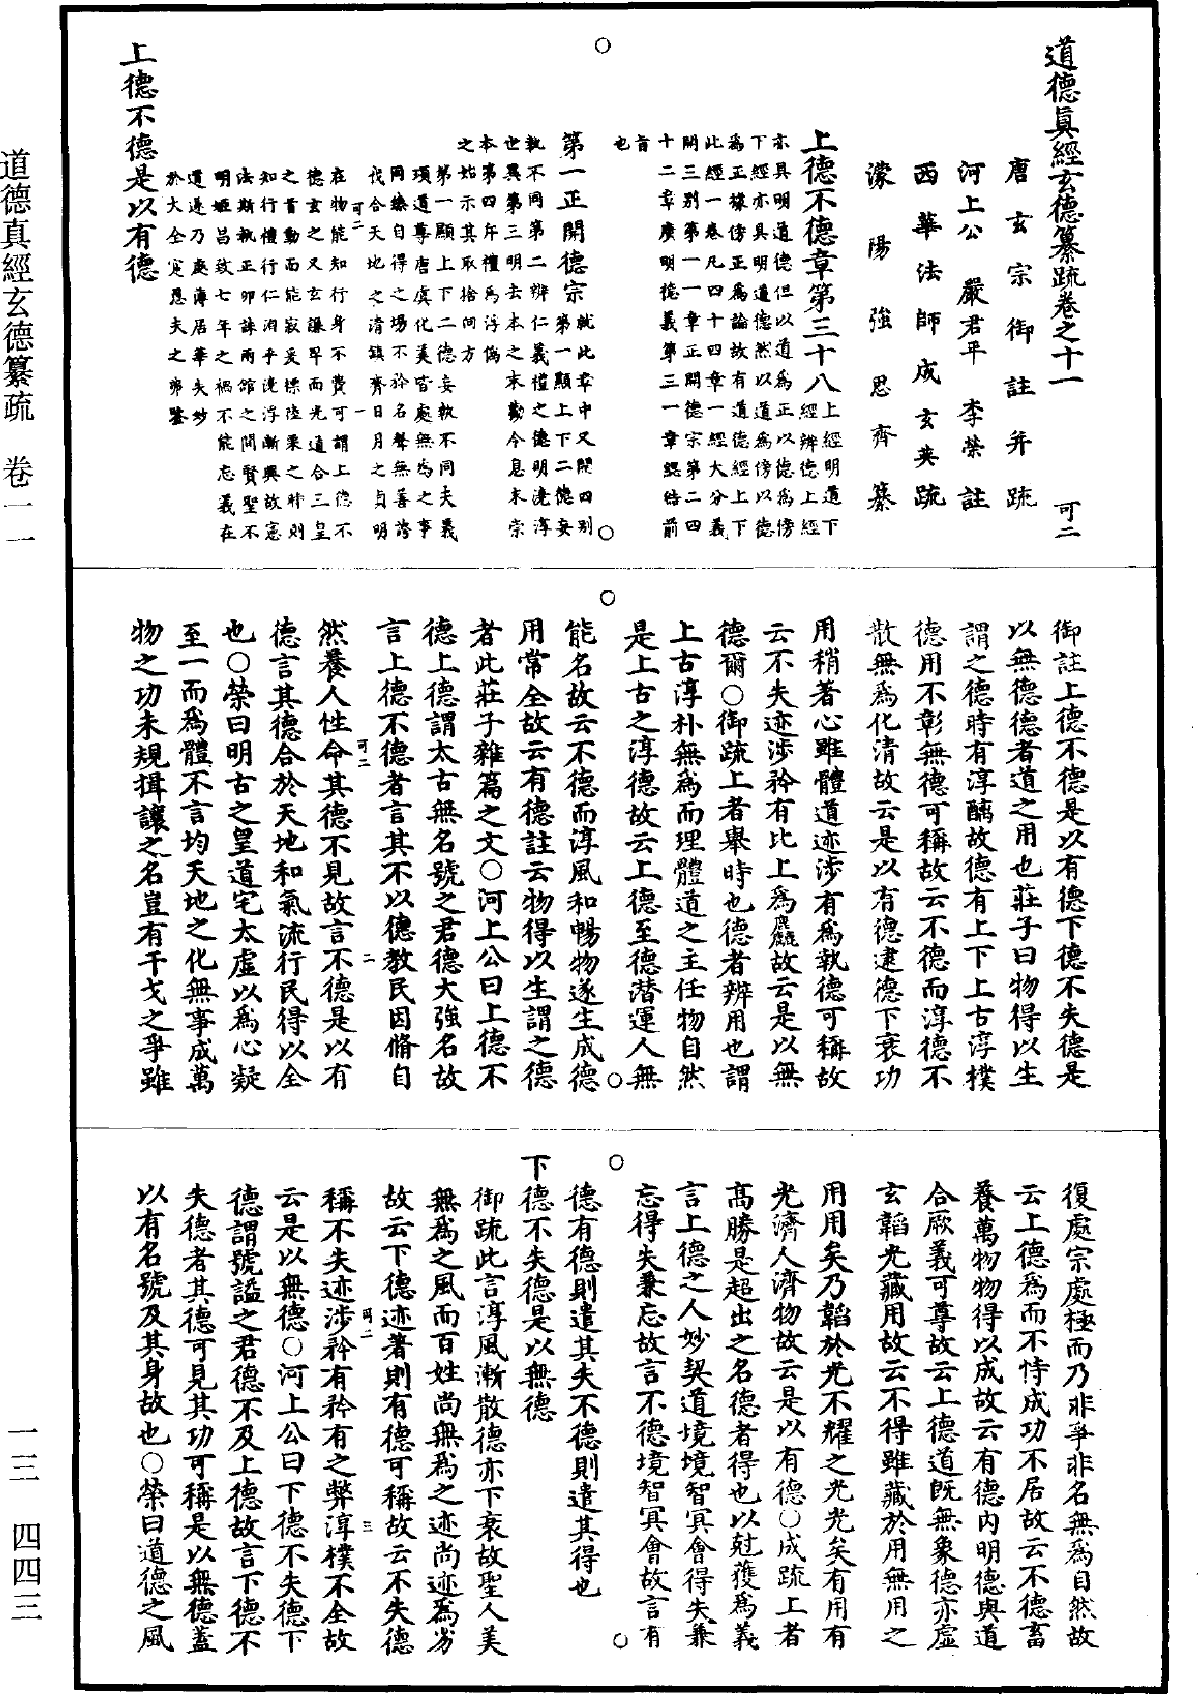 道德眞經玄德纂疏卷之十一 可二
唐玄宗御註幷疏
河上公 嚴君平 李榮註
西華法師成玄英疏
濛陽強思齊纂
上德不德章第三十八
上經明道下
經辨德上經
亦具明道德但以道爲正以德爲傍
下經亦具明道德然以道爲傍以德
爲正據傍正爲論故有道德經上下
此經一卷凡四十四章一經大分義
開三別第一一章正開德宗第二四
十二章廣明德義第三一章總結前
旨
也
第一正開德宗
就此章中又開四別
第一顯上下二德妄
執不同第二辨仁義禮之德明澆淳
世異第三明去本之末勸令息末崇
本第四年禮爲浮僞
之始示其取捨向方
第一顯上下二德妄執不同夫義
頊道尊唐虞化美皆處無爲之事
同臻自得之場不矜名聲無善誇
伐合天地之清鎮齊日月之貞明
可二 一
在物能知行身不費可謂上德不
德玄之又玄讓卑而光通合三皇
之首動而能寂妥標陸栗之時則
知行行禮行仁洎乎澆浮漸興故憲
法斯執正卯誅兩館之間賢聖不
明姬昌致七年之禍不能忘義在
道遂乃處薄居華失妙
於大全寃恩夫之弗鑒
上德不德是以有德
御註上德不德是以有德下德不失德是
以無德德者道之用也莊子曰物得以生
謂之德時有淳醨故德有上下上古淳樸
德用不彰無德可稱故云不德而淳德不
散無爲化清故云是以有德逮德下衰功
用稍著心雖體道迹涉有爲執德可稱故
云不失迹涉矜有比上爲麤故云是以無
德爾○御疏上者舉時也德者辨用也謂
上古淳朴無爲而理體道之主任物自然
是上古之淳德故云上德至德潛運人無
能名故云不德而淳風和暢物遂生成德
用常全故云有德註云物得以生謂之德
者此莊子雜篇之文○河上公曰上德不
德上德謂太古無名號之君德大強名故
言上德不德者言其不以德教民因脩自
可二 二
然養人性命其德不見故言不德是以有
德言其德合於天地和氣流行民得以全
也○榮曰明古之皇道宅太虛以爲心凝
至一而爲體不言均天地之化無事成萬
物之功未規揖讓之名豈有干戈之爭雖
復處宗處極而乃非爭非名無爲自然故
云上德爲而不恃成功不居故云不德畜
養萬物物得以成故云有德內明德與道
合厥義可尊故云上德道旣無象德亦虛
玄韜光藏用故云不得雖藏於用無用之
用用矣乃韜於光不耀之光光矣有用有
光濟人濟物故云是以有德○成疏上者
高勝是超出之名德者得也以尅獲爲義
言上德之人妙契道境境智冥會得失兼
忘得失兼忘故言不德境智冥會故言有
德有德則遣其失不德則遣其得也
下德不失德是以無德
御疏此言淳風漸散德亦下衰故聖人美
無爲之風而百姓尚無爲之迹尚迹爲劣
故云下德迹著則有德可稱故云不失德
可二 三
稱不失迹涉矜有矜有之弊淳樸不全故
云是以無德○河上公曰下德不失德下
德謂號謚之君德不及上德故言下德不
失德者其德可見其功可稱是以無德蓋
以有名號及其身故也○榮曰道德之風
道德真經玄德纂疏 卷一一
一三 四四三